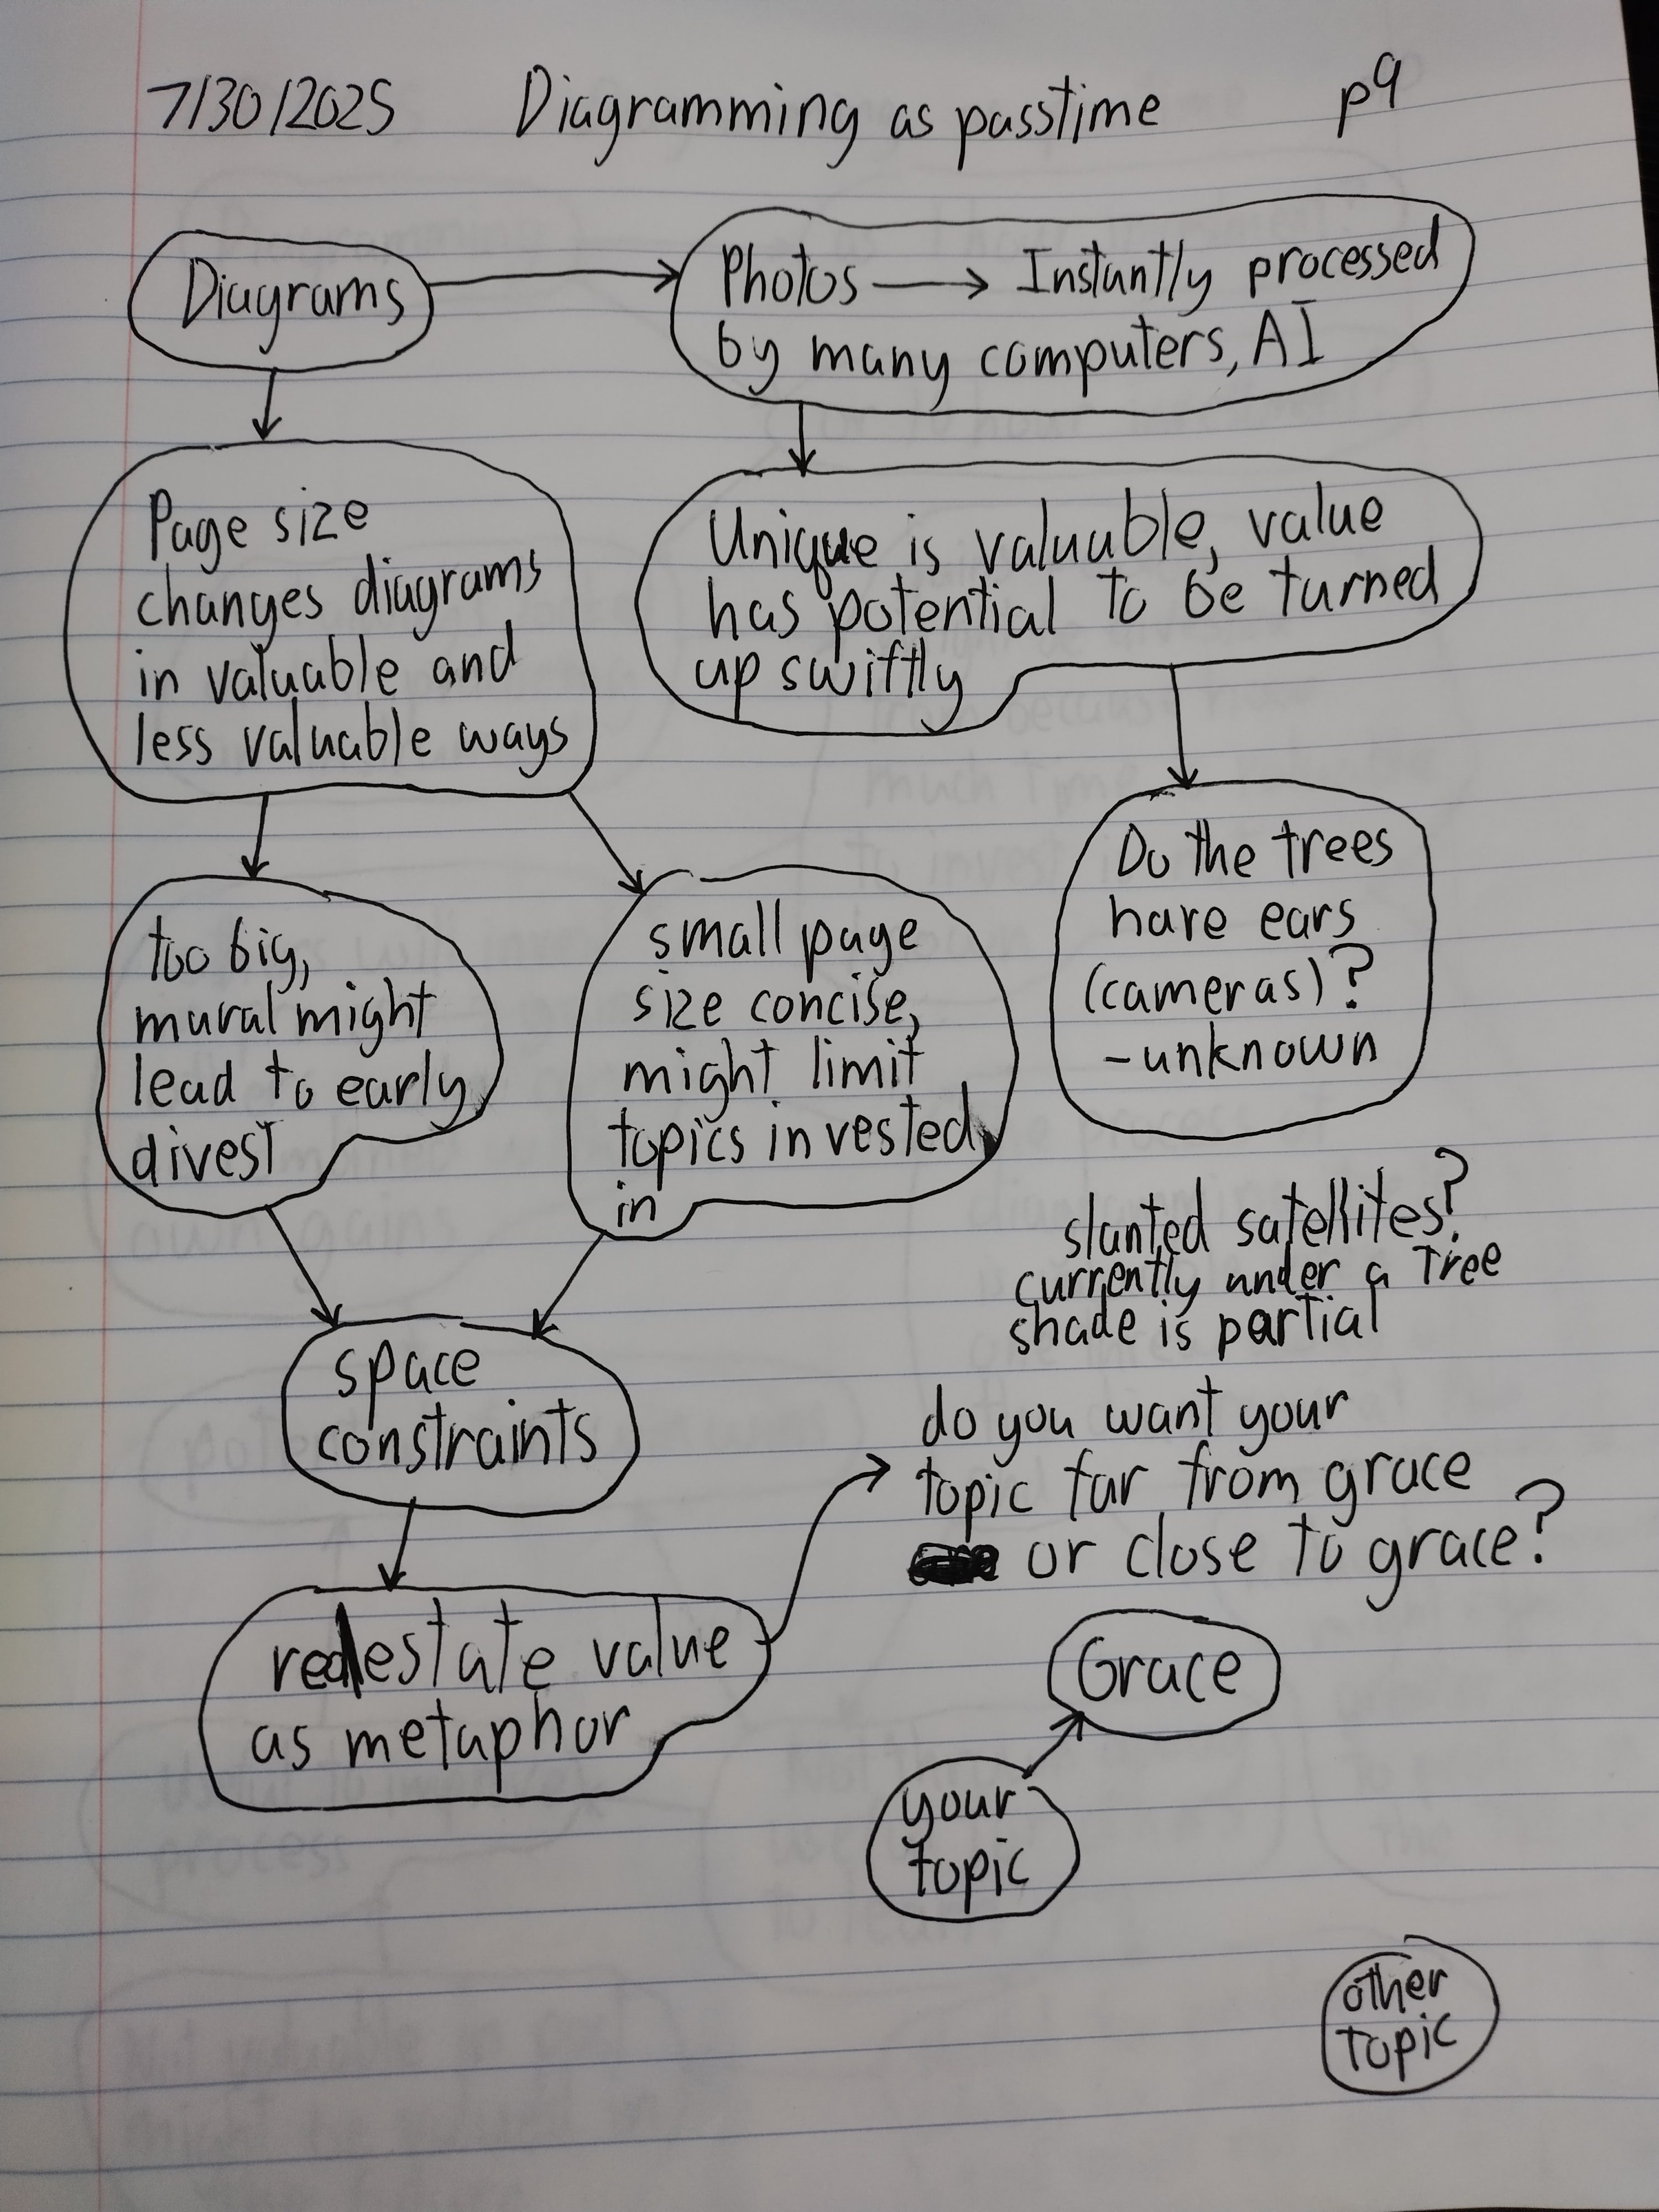 7/30/2025 Diagramming as passtime p9
Diagrams
Photos → Instantly processed
by many computers, AI
Page size
changes diagrams
in valuable and
less valuable ways
Unique is valuable, value
has potential to be turned
up swiftly
too big,
mural might
lead to early
divest
small page
size concise,
might limit
topics invested
in
Do the trees
have ears
(cameras)?
-unknown
slanted satellites?
currently under a tree
shade is partial
space
constraints
realestate value
as metaphor
do you want your
topic far from grace
or close to grace?
Grace
your
topic
other
topic